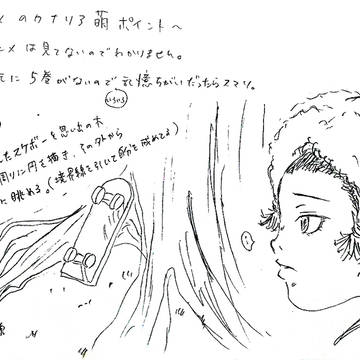 のカナリア萌ポイント〜
メは見てないのでわかりません。
元に5巻がないので記憶ちがいだったらスマソ。
いろいろ
したスケボーを思い出の木
周りに円を描き、その外から
に眺める。(境界線を引いて自分を戒めてる)